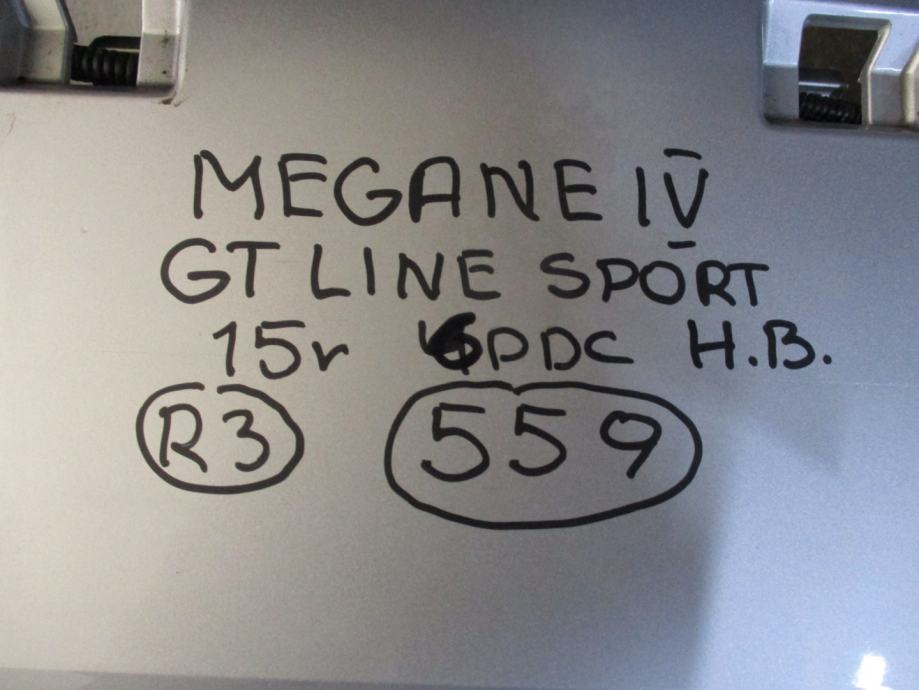 MEGANE IV
GT LINE SPORT
15r 6PDC H.B.
R3 559